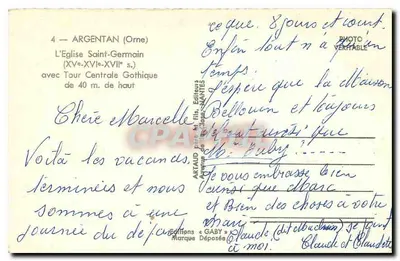 4 — ARGENTAN (Orne)
L'Eglise Saint-Germain
(XVe-XVIe-XVIIe s.)
avec Tour Centrale Gothique
de 40 m. de haut
Chère Marcelle
Voilà les vacances
terminées et nous
sommes à une
journée du départ
ce que 8 jours et court.
Enfin tout n'a
temps.
J'espère que la Maison
Bellouin et toujours
debout ainsi que
M. Puby! -----
Je vous embrasse bien
ainsi que Marc
et Bien des choses à votre
mari
Claude se joint
à moi. Claude et Claudette
PHOTO
VÉRITABLE
ARTAUD Père et Fils, Editeurs
NANTES
Editions « GABY »
Marque Déposée
CPARAMA